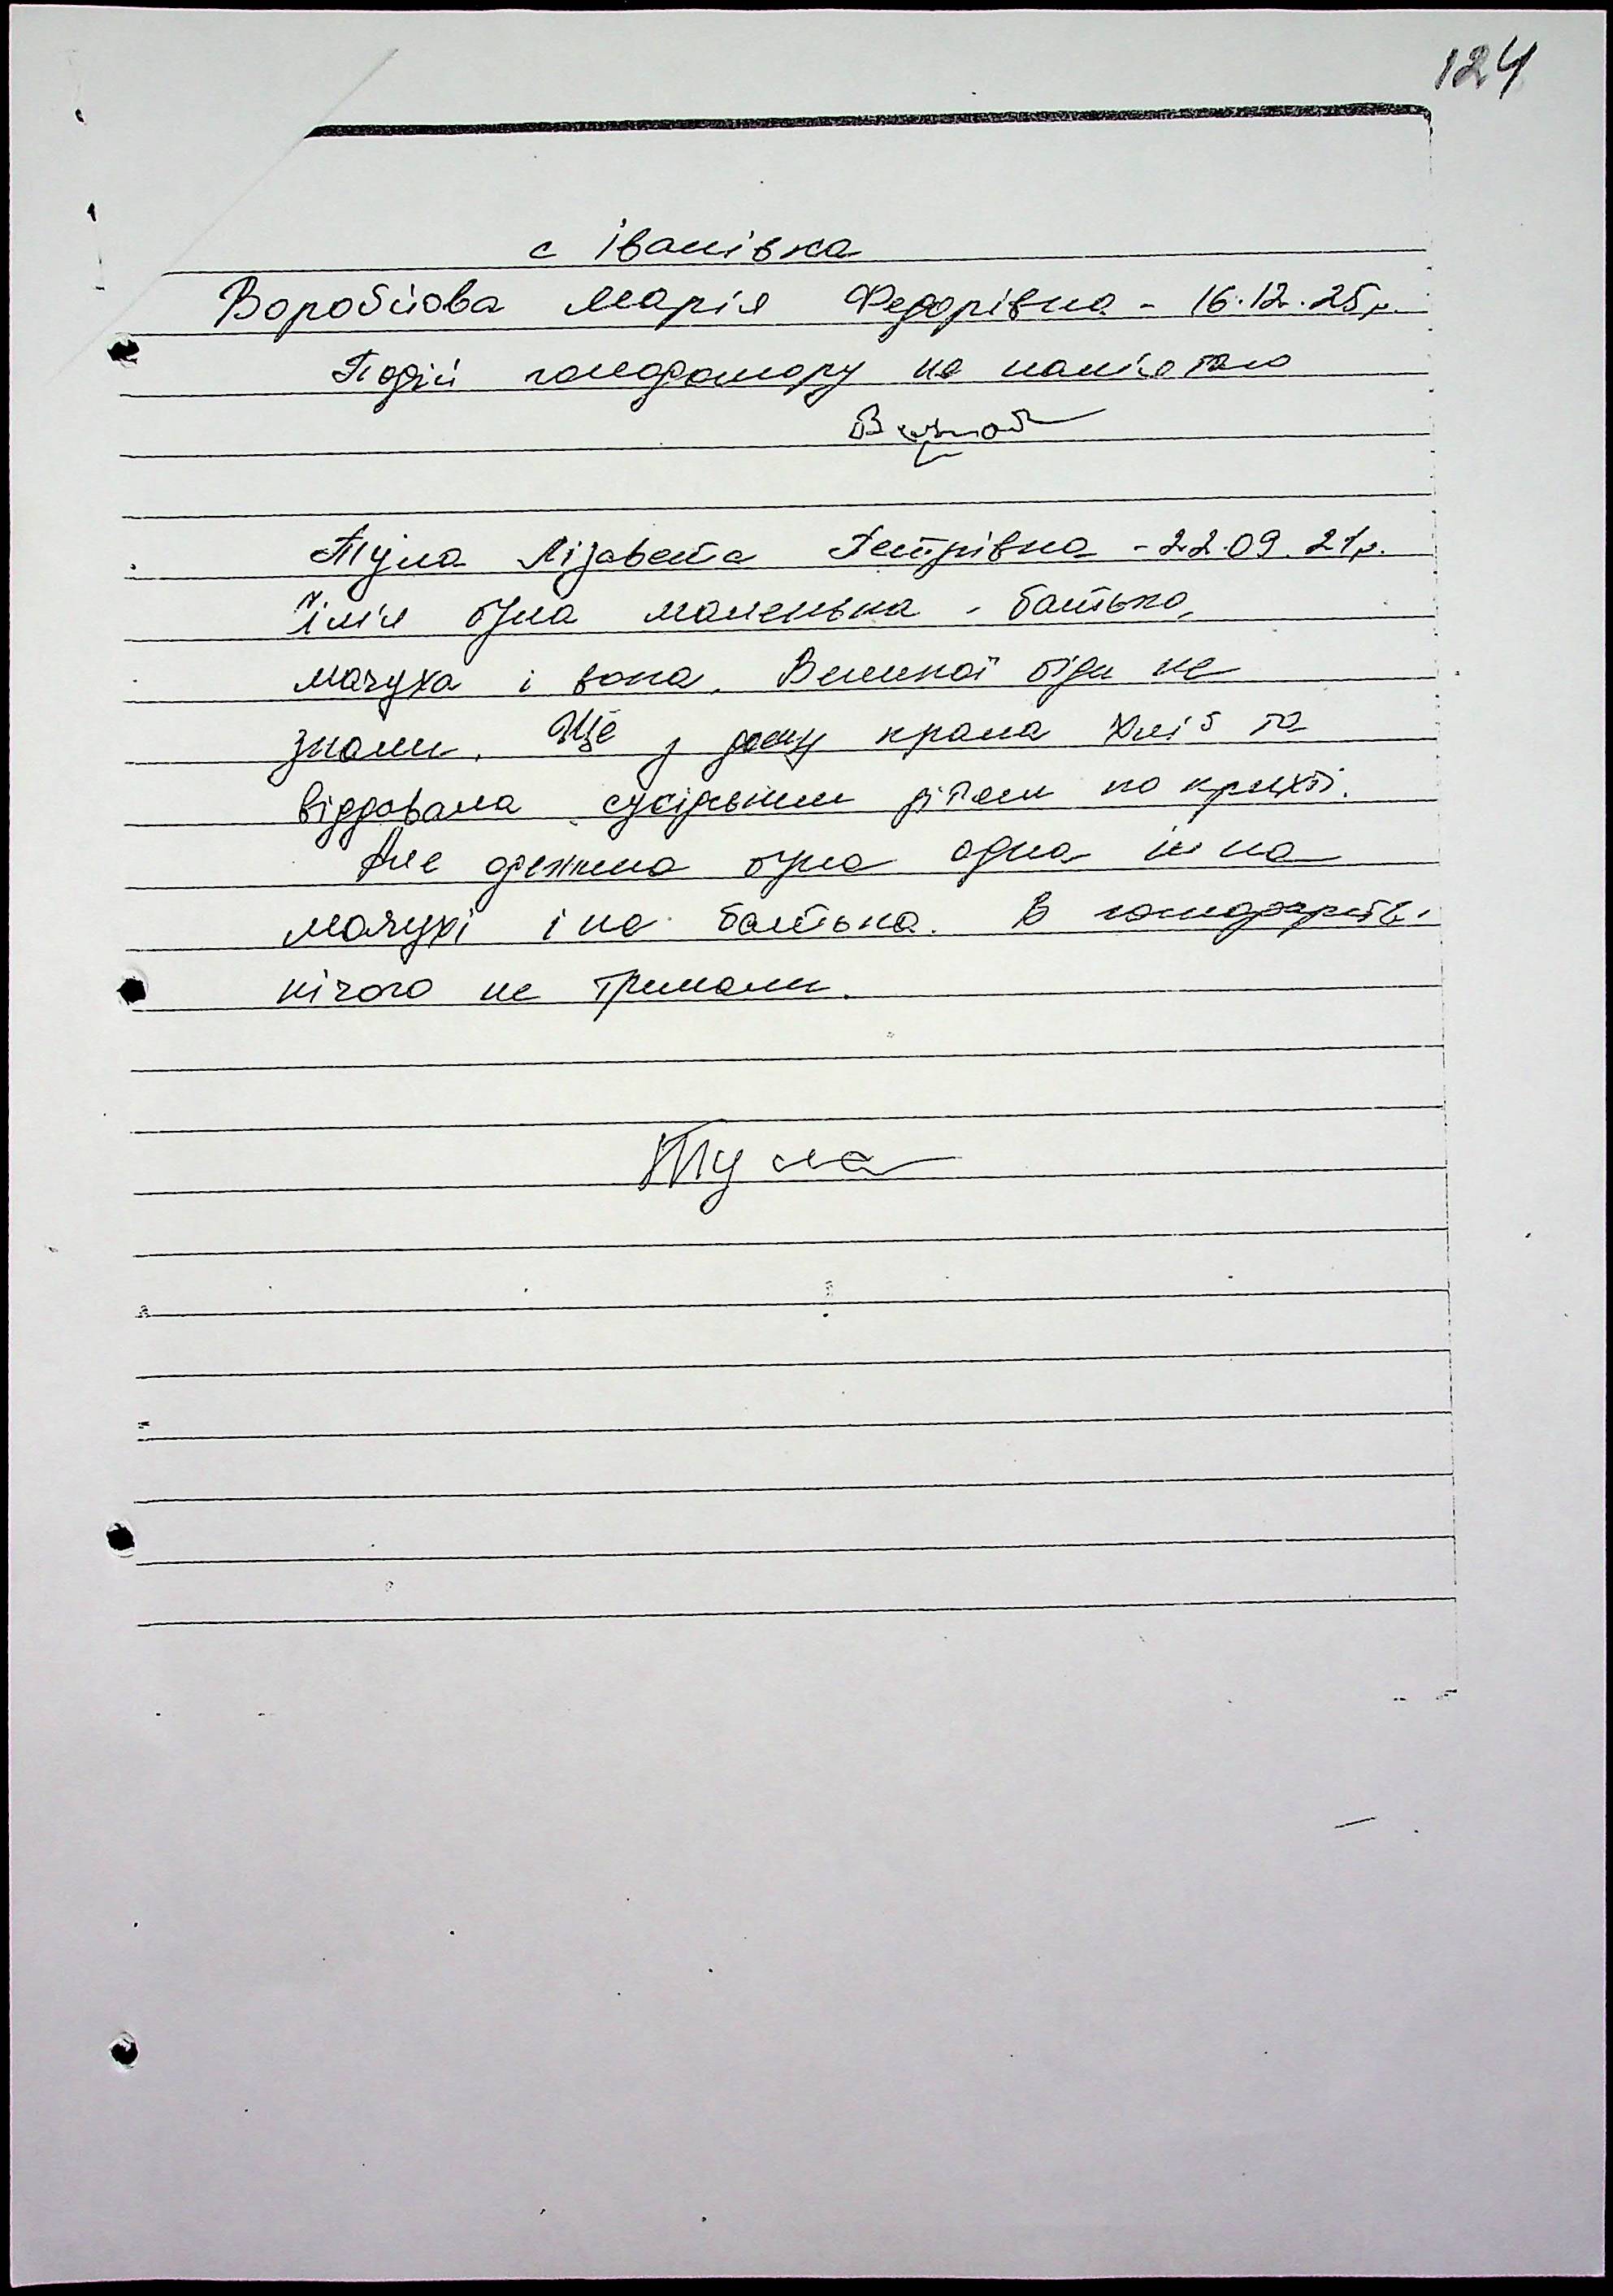 124
с Іванівка
Воробйова Марія Федорівна - 16.12.25р.
Подій голодомору не памʼятаю
Тула Лізавета Петрівна - 22.09.21р.
Сімʼя була маленька - батько,
мачуха і вона. Великої біди не
знали. Ще з дому крала хліб та
віддавала сусідським дітям по крихті.
Але одежина була одна і на
мачухі і на батька. В господарстві
нічого не тримали.
Тула